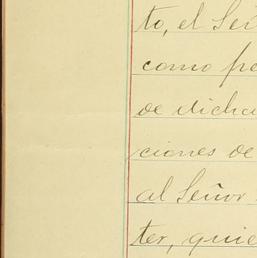 to, el Señ
como pe
de dicha
ciones de
al Señor
ter, quie